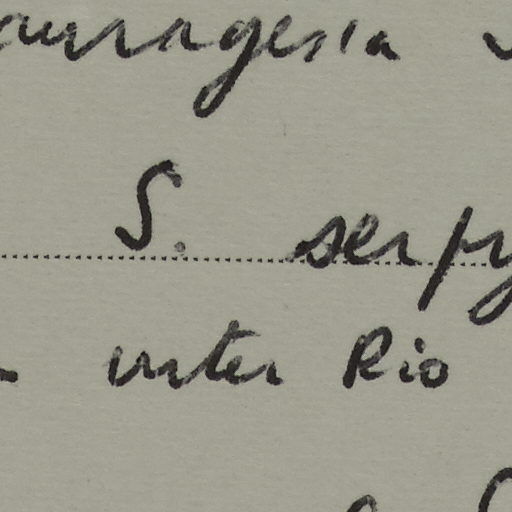 auvagesia
S. serpy
inter Rio